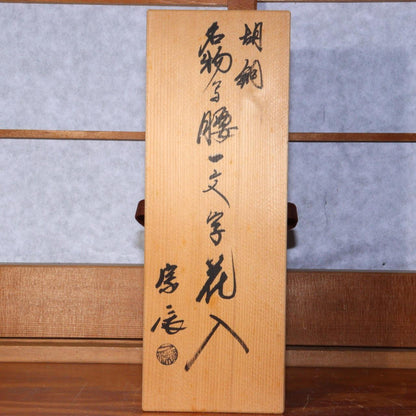 胡銅
名物写腰一文字花入
宗辰